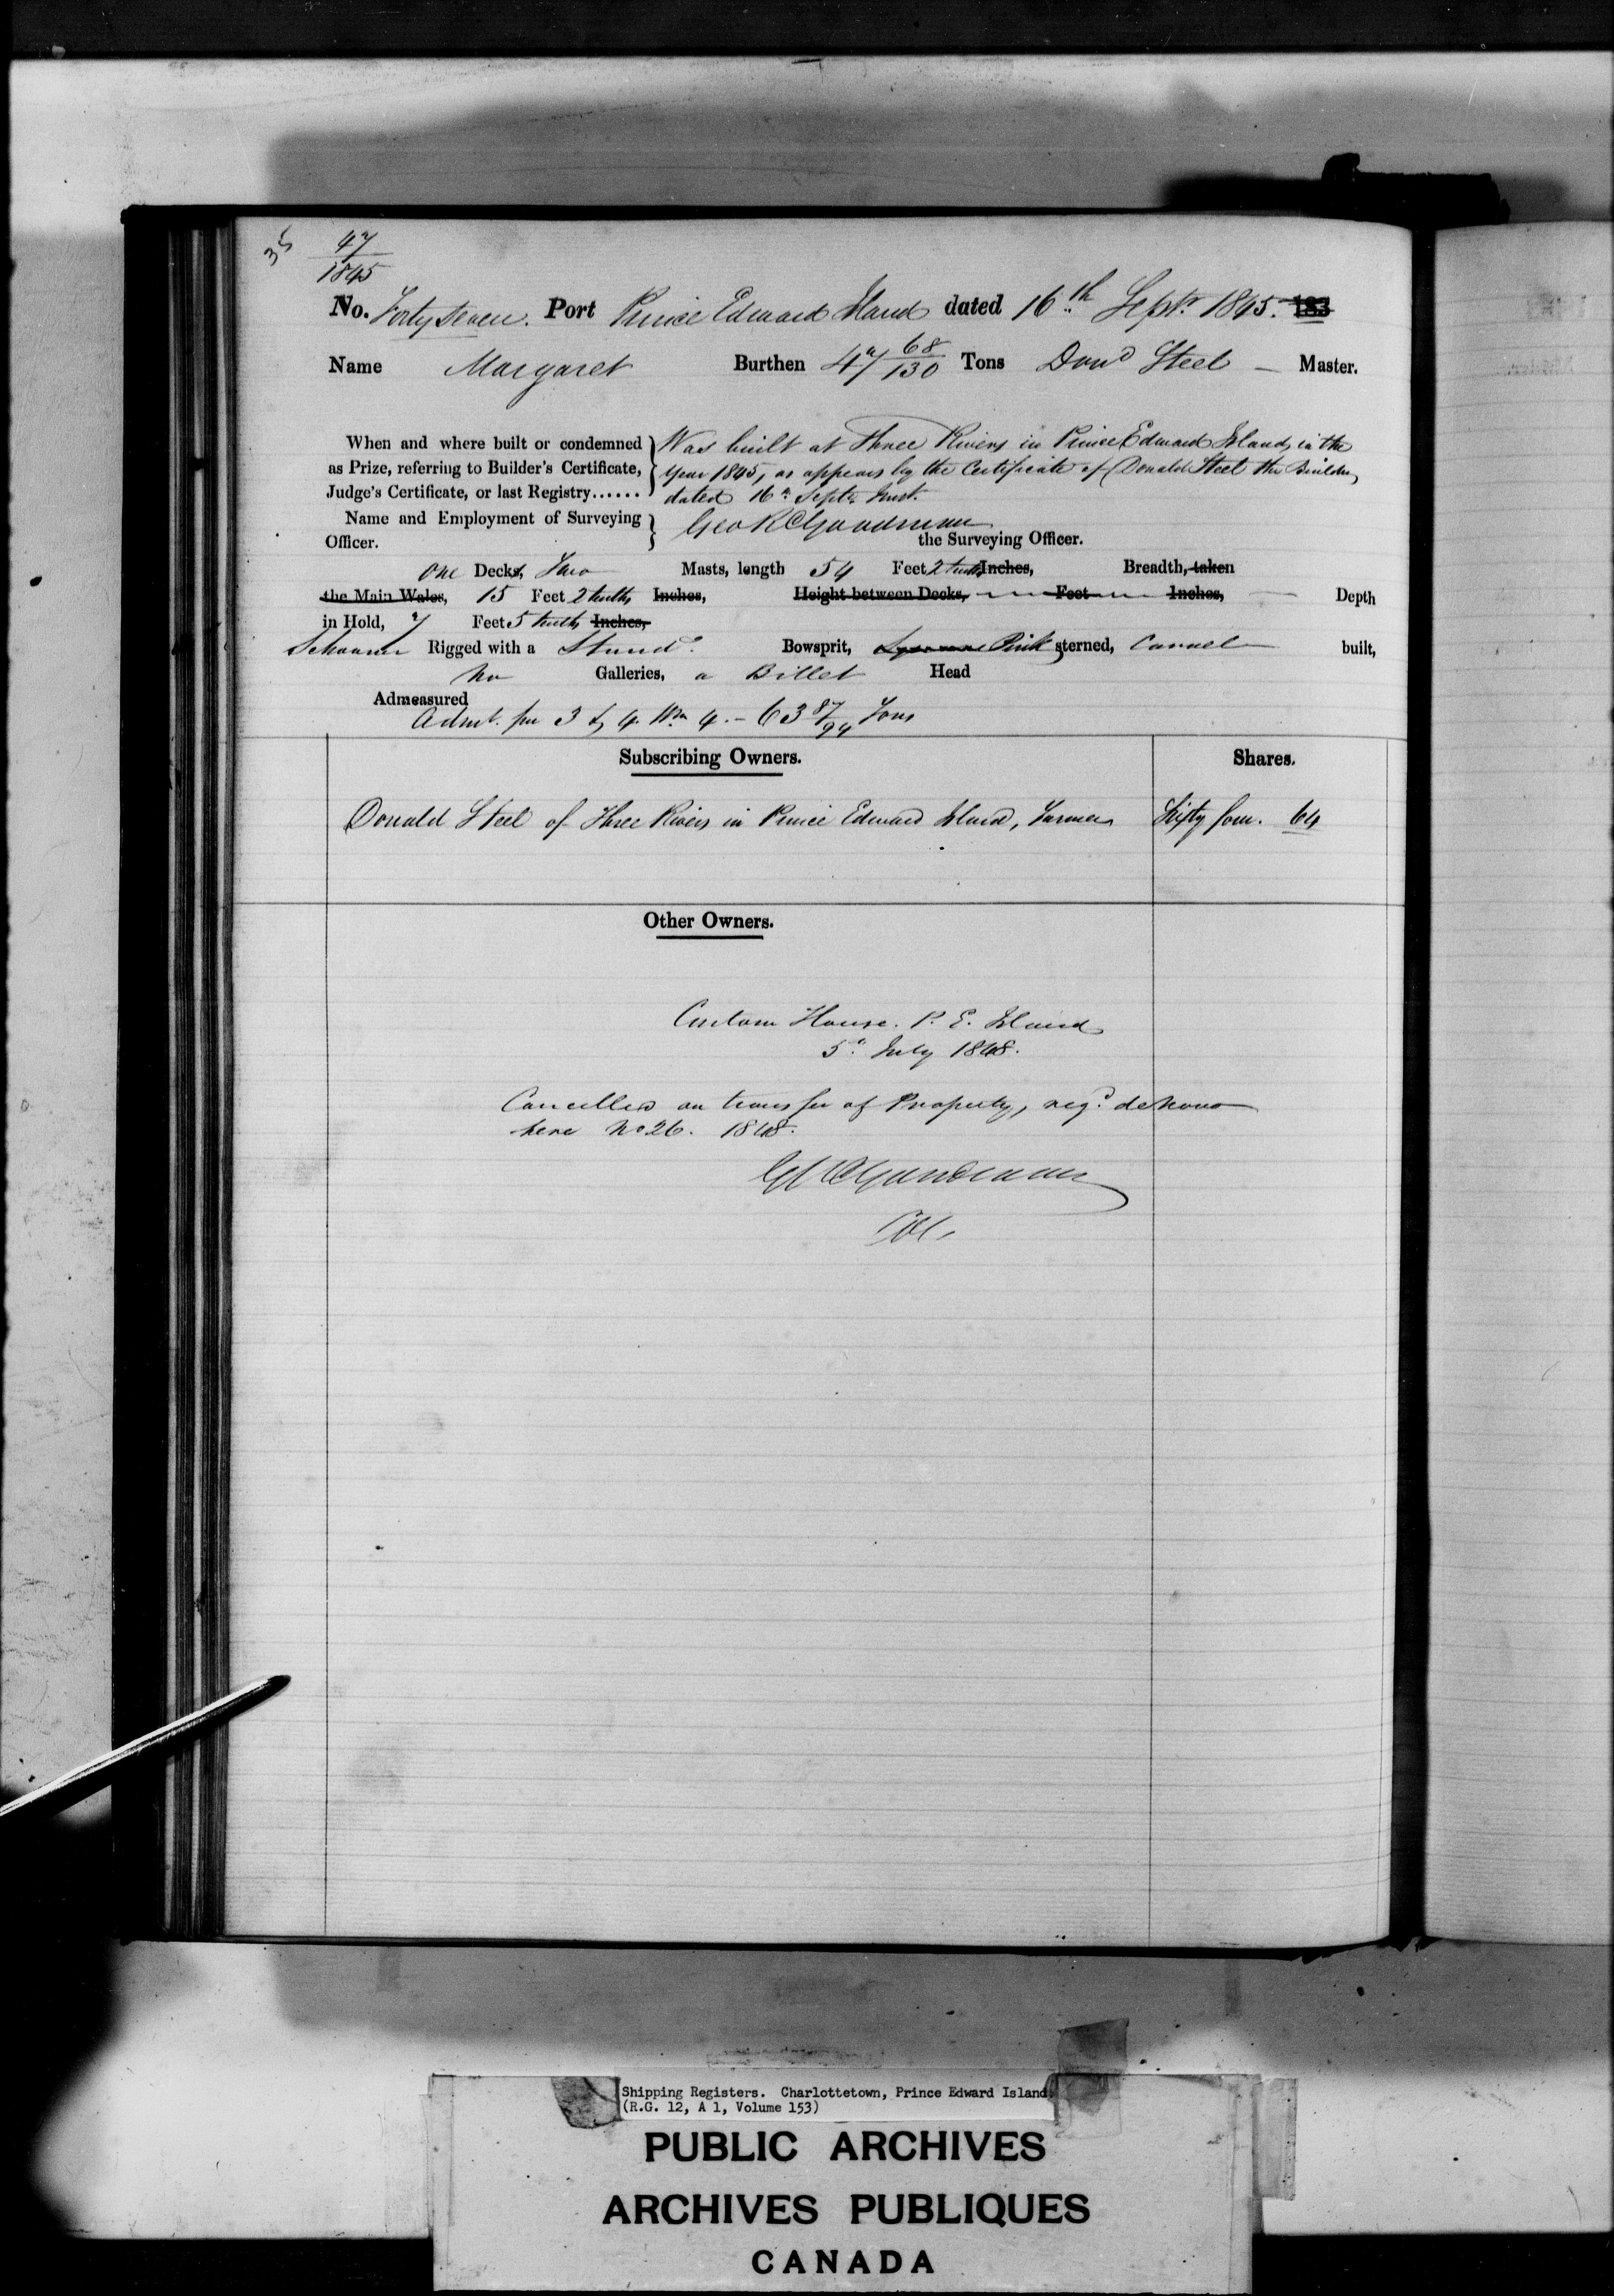 35
47
1845
No. Forty seven. Port Prince Edward Island dated 16th Septr 1845. 183
Name Margaret Burthen 47 68/130 Tons Dond Steel – Master.
When and where built or condemned Was built at Three Rivers in Prince Edward Island, in the
as Prize, referring to Builder's Certificate, Year 1845, as appears by the Certificate of Donald Steel the Builder,
Judge's Certificate, or last Registry...... dated 16th Septr Inst.
Name and Employment of Surveying Geo R Goodman
Officer. the Surveying Officer.
one Decks, Two Masts, length 54 Feet 2 tenths Inches, Breadth, taken
the Main Wales, 15 Feet 2 tenths Inches, Height between Decks, Feet Inches, Depth
in Hold, 7 Feet 5 tenths Inches,
Schooner Rigged with a Stand.g Bowsprit, Pink sterned, Carvel built,
No Galleries, a Billet Head
Admeasured
Admt. per 3 & 4 Wm 4. – 63 87/94 Tons
Subscribing Owners. Shares.
Donald Steel of Three Rivers in Prince Edward Island, Farmer Sixty four. 64
Other Owners.
Custom House. P. E. Island
5th July 1848.
Cancelled on transfer of Property, regd de Novo
here No 26. 1848.
GR Goodman
Col.
Shipping Registers. Charlottetown, Prince Edward Island.
(R.G. 12, A 1, Volume 153)
PUBLIC ARCHIVES
ARCHIVES PUBLIQUES
CANADA